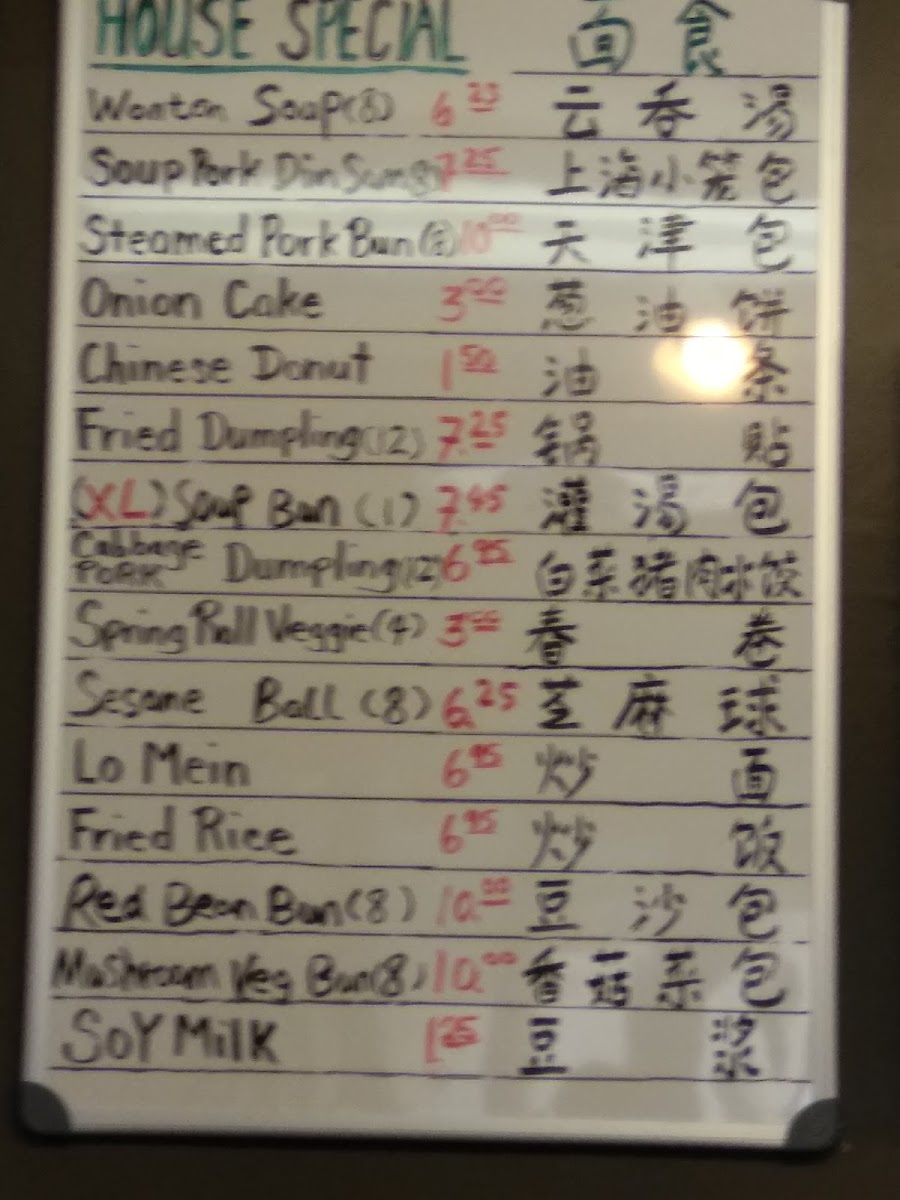 HOUSE SPECIAL 面食
Wonton Soup(8) 6.25 云吞湯
Soup Pork Dim Sum(8) 7.25 上海小笼包
Steamed Pork Bun(8) 10.00 天津包
Onion Cake 3.00 葱油饼
Chinese Donut 1.50 油条
Fried Dumpling(12) 7.25 锅贴
(XL) Soup Bun (1) 7.45 灌湯包
Cabbage PORK Dumpling(12) 6.95 白菜猪肉水饺
Spring Roll Veggie(4) 3.00 春卷
Sesane Ball (8) 6.25 芝麻球
Lo Mein 6.95 炒面
Fried Rice 6.95 炒饭
Red Bean Bun(8) 10.00 豆沙包
Mushroom Veg Bun(8) 10.00 香菇菜包
SOY MilK 1.25 豆浆